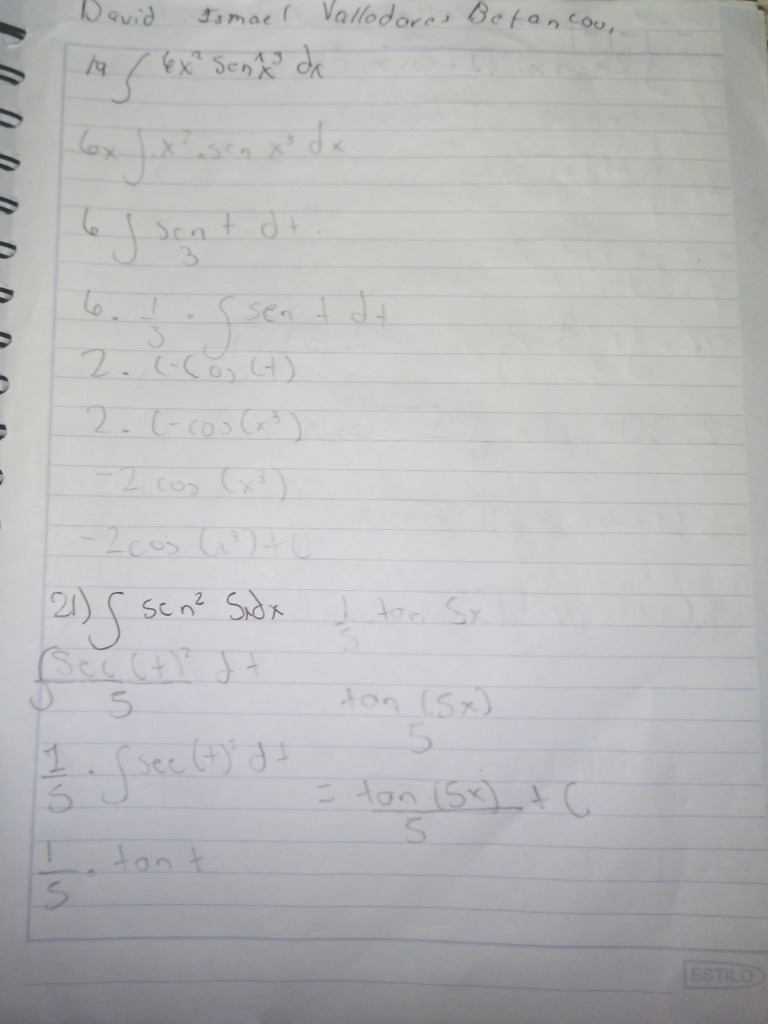 David Ismael Valladares Betancou,
19 ∫ 6x² sen x³ dx
6x ∫ x² . sen x³ dx
6 ∫ sen t dt
3
6 . 1/3 . ∫ sen t dt
2 . (-Cos (t)
2 . (-cos (x³)
-2 cos (x³)
-2cos (x³) + C
21) ∫ scn² 5xdx
∫ sec (t)² dt
5
1/5 . ∫ sec (t)² dt
1/5 . tan t
1/5 tan 5x
tan (5x)
5
= tan (5x) + C
5
ESTILO